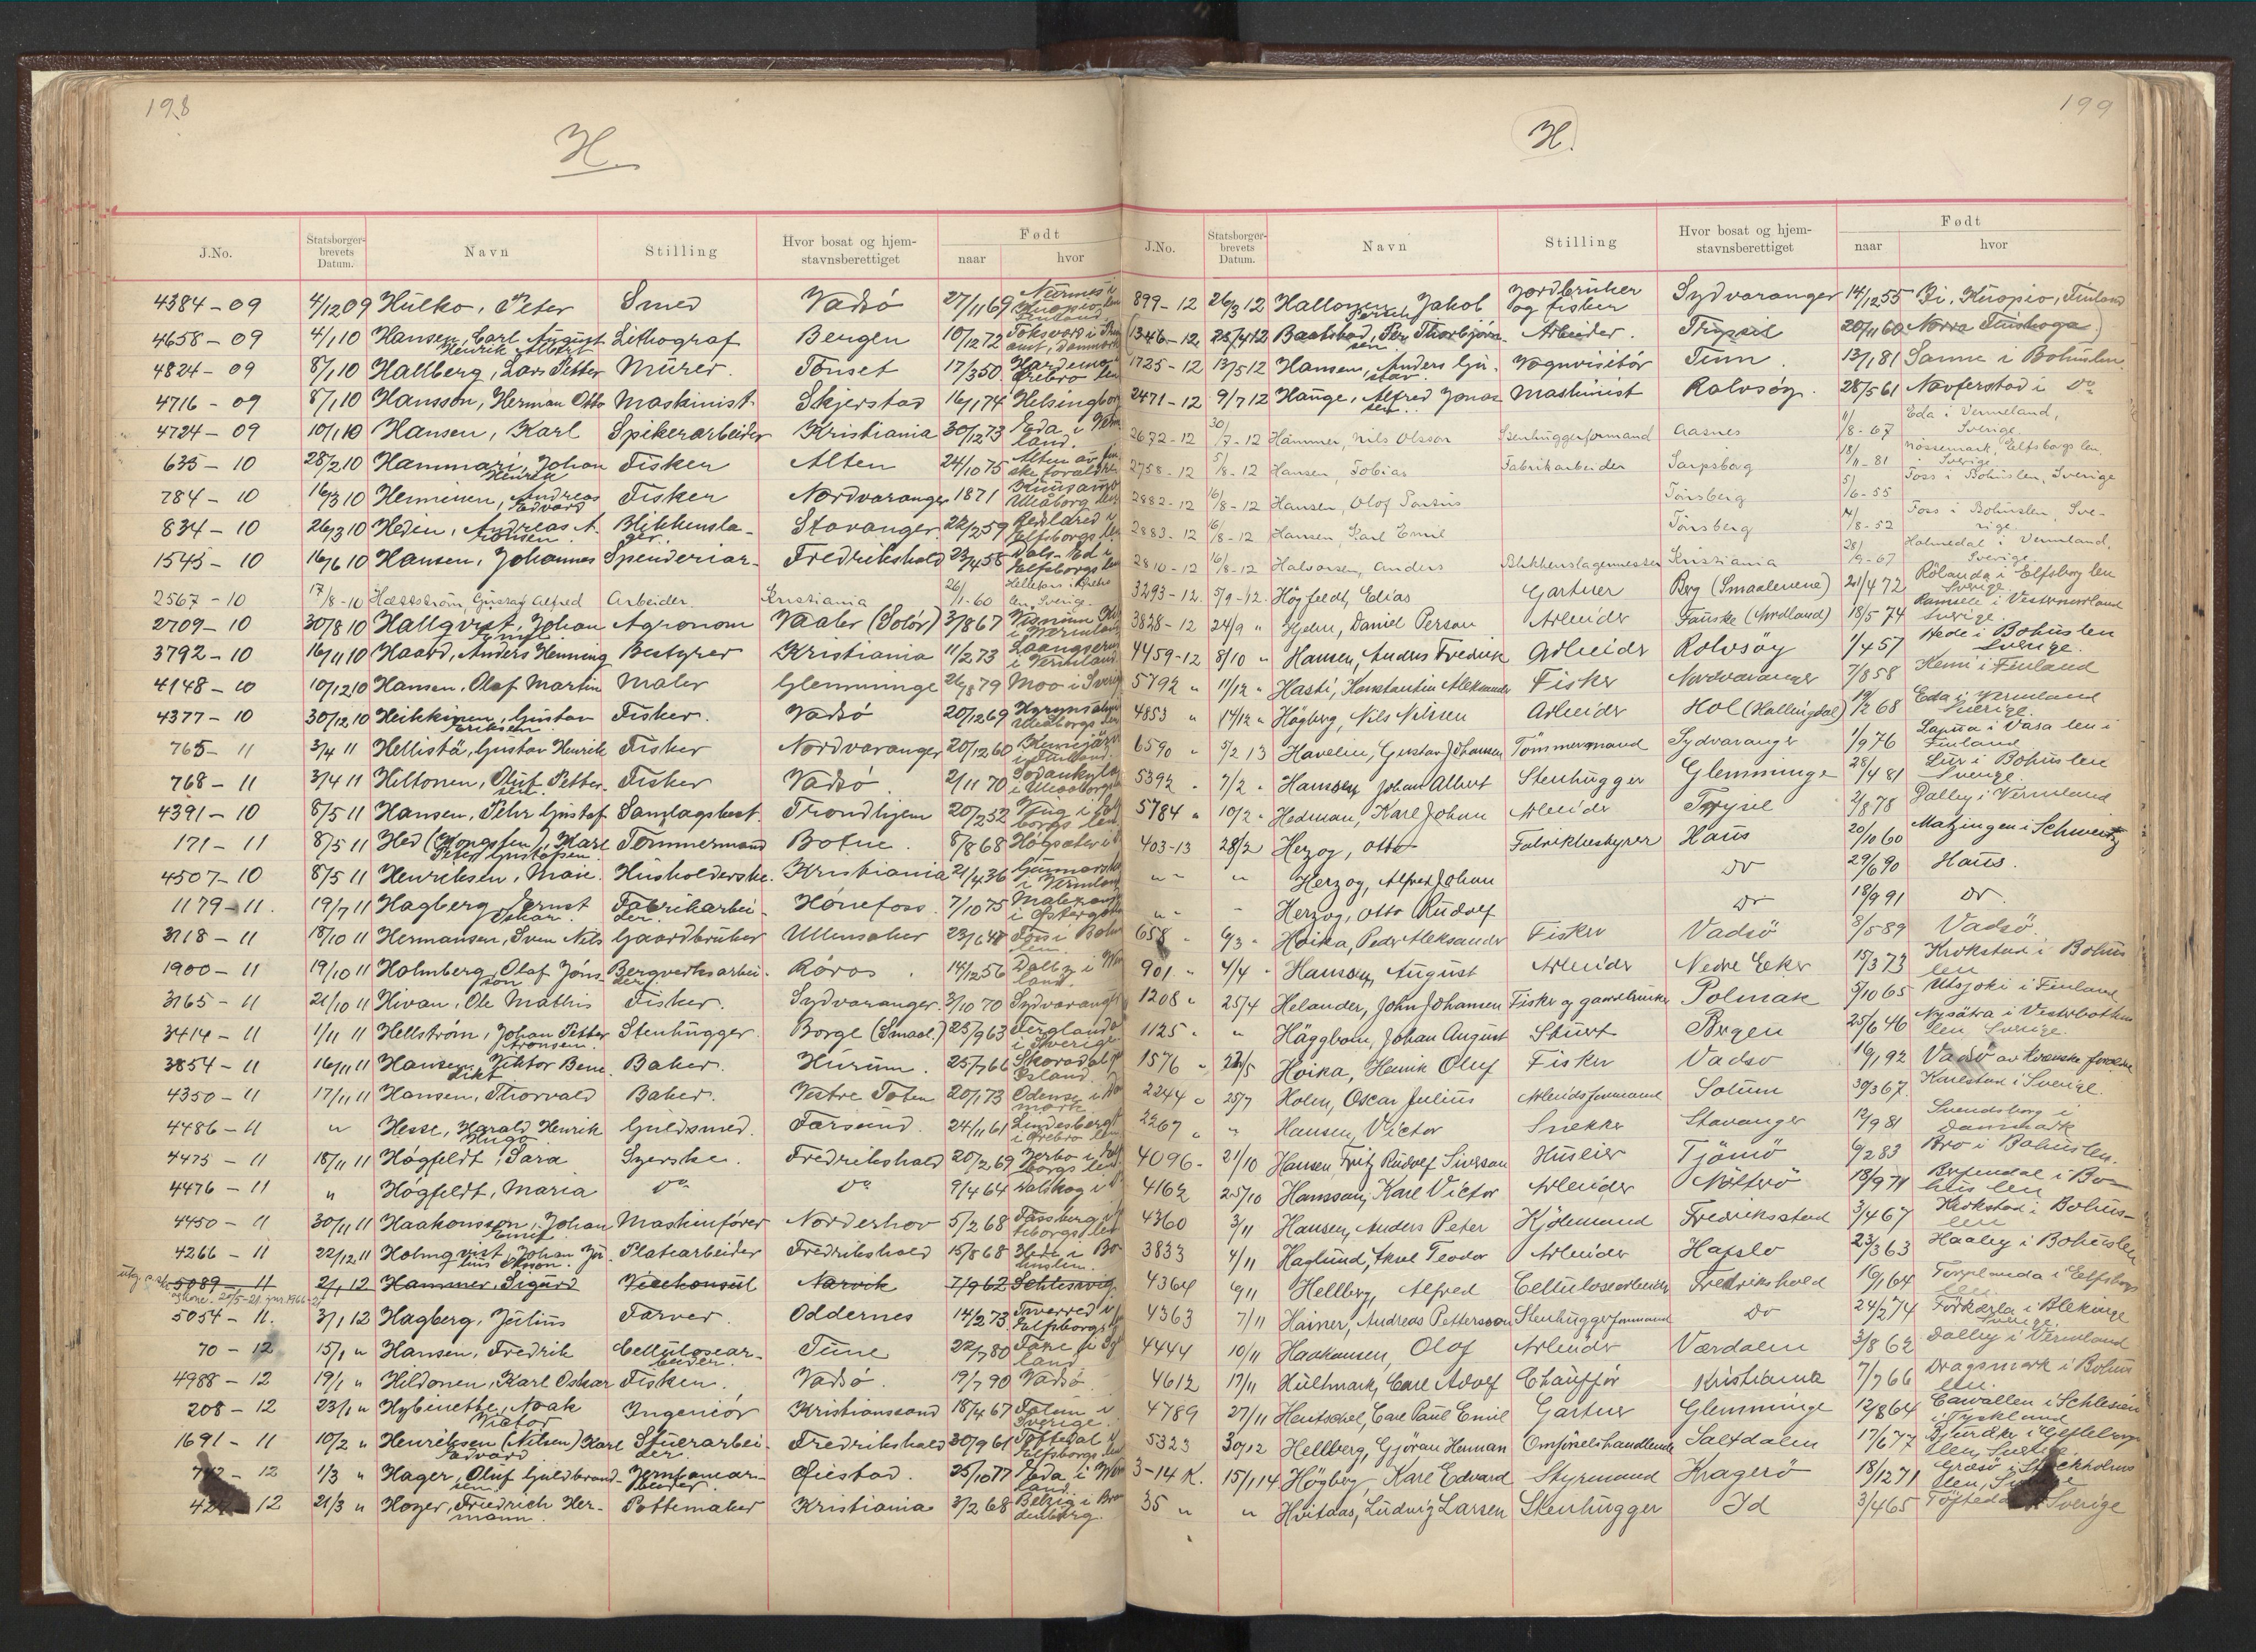 198
H.
J.No. Statsborgerbrevets Datum. Navn Stilling Hvor bosat og hjemstavnsberettiget Født naar hvor
4384 - 09 4/12 09 Hulko, Peter Smed Vadsö 27/11 69 Nurmes i Kuopio len Finland
4658 - 09 4/1 10 Hansen, Carl August Henrik Albert Lithograf Bergen 10/12 72
4824 - 09 8/1 10 Hallberg, Lars Petter Murer. Tönset 17/3 50 Hardemo i Örebro len
4716 - 09 8/1 10 Hansson, Herman Otto Maskinist. Skjerstad 16/1 74 Helsingborg
4724 - 09 10/1 10 Hansen, Karl Spikerarbeider Kristiania 30/12 73 Eda i Vermland.
635 - 10 28/2 10 Hammari, Johan Henrik Fisker Alten 24/10 75 Alten av finske forældre
784 - 10 16/3 10 Heminen, Andreas Edvard Fisker Nordvaranger 1871 Kuusamo Uleåborg len
834 - 10 26/3 10 Hedin, Andreas A. Blikkenslager. Stavanger 22/2 59 Elfsborgs len
1545 - 10 16/6 10 Hansen, Johannes Fredrikshald 23/4 56 Dals-Ed i Elfsborgs len
2567 - 10 17/8 - 10 Häsström, Gustaf Alfred Arbeider Kristiania 26/1 - 60 len, Sverige
2709 - 10 30/8 10 Hallqvist, Johan Agronom Vaaler (Solör) 3/8 67 i Vermland
3792 - 10 16/11 10 Haard, Anders Henning Bestyrer Kristiania 11/2 73 i Vermland
4148 - 10 10/12 10 Hansen, Olaf Martin Maler Glemminge 26/8 79 Moo i Sverige
4377 - 10 30/12 10 Heikkinen, Gustav Eriksen Fisker. Vadsö 20/12 69 Uleåborgs len
765 - 11 3/4 11 Hellistä, Gustav Henrik Fisker Nordvaranger 20/12 60 Kemijärvi i Finland
768 - 11 3/4 11 Heltonen, Oluf Pettersen. Fisker Vadsö 2/11 70 Sodankylä i Uleåborgs
4391 - 10 8/5 11 Hansen, Pehr Gustaf Samlagsbest. Trondhjem 20/2 52
171 - 11 8/5 11 Hed (Kongssen), Karl Peter Gustafsen. Tømmermand Botne. 8/8 68 Högsäter i
4507 - 10 8/5 11 Henriksen, Marie. Husholderske. Kristiania 21/4 36 Gunnarskog i Vermland
1179 - 11. 19/7 11 Hagberg, Ernst Oskar. Fabrikarbeider. Hönefoss. 7/10 75 i Östergötl
3118 - 11 18/10 11 Hermansen, Sven Nils Gaardbruker Ullensaker 23/6 48 Foss i Bohuslen
1900 - 11 19/10 11 Holmberg, Olaf Jönsson Bergverksarbeider. Röros. 14/12 56 Dalby i Vermland.
3165 - 11 21/10 11 Hivan, Ole Mathis Fisker. Sydvaranger. 3/10 70 Sydvaranger
3414 - 11 1/11 11 Hellström, Johan Petter Aronsen. Stenhugger. Borge (Smaal.) 25/9 63 i Sverige.
3854 - 11 16/11 11 Hansen, Viktor Benedikt Baker. Hurum. 25/7 66 Island.
4350 - 11 17/11 11 Hansen, Thorvald Baker. Vestre Toten 20/1 73 Odense i Danmark
4486 - 11 " Hesse, Harald Henrik Hugo. Guldsmed. Farsund. 24/11 61 Lindesberg i Örebro len
4475 - 11 18/11 11 Högfeldt, Sara Syerske. Fredrikshald 20/2 69
4476 - 11 " Högfeldt, Maria do do 9/4 64
4450 - 11 30/11 11 Haakonsson, Johan Emil Maskinfører Norderhov 5/2 68
4266 - 11 22/12 11 Holmqvist, Johan Julius Olsson. Platearbeider Fredrikshald 15/8 68 Hede i Bohuslen.
5089 - 11 2/1 12 Hammer, Sigurd Vicekonsul Narvik 7/9 62 Schleswig
5054 - 11. 3/1 12 Hagberg, Julius Farver. Oddernes 14/2 73 Elfsborgs
70 - 12 15/1 " Hansen, Fredrik Cellulosearbeider. Tune 22/7 80
4988 - 12 19/1 " Hildonen, Karl Oskar Fisker. Vadsö. 19/7 90 Vadsö
208 - 12 23/1 " Hybinette, Noak Viktor Ingeniör Kristianssand 18/4 67 Falun i Sverige.
1691 - 11 10/2 " Henriksen (Nilsen) Karl Edvard Stuerarbeider. Fredrikshald 30/9 61 Töftedal i Elfsborgs len
- 12 1/3 " Hager, Oluf Guldbrandsen. Jernbanearbeider. Øiestad. 25/10 77 Eda i Vermland.
- 12 21/3 " Hoyer, Friedrich Hermann. Pottemaker Kristiania 3/2 68 Belzig i Brandenburg.
199
H.
J.No. Statsborgerbrevets Datum. Navn Stilling Hvor bosat og hjemstavnsberettiget Født naar hvor
899 - 12 26/3 12 Hallonen, Jakob Jordbruker og fisker Sydvaranger 14/12 55 Ii, Kuopio, Finland
(1346 - 12 25/4 12 Baatstad, Per Thorbjörnsen Arbeider. Trysil 20/11 60 Norra Finskoga.)
1725 - 12 13/5 12 Hansen, Anders Gustav. Vognvisitör Tinn 13/1 81 Sanne i Bohuslen.
2471 - 12 9/7 12 Hauge, Alfred Jonassen. Maskinist Rolvsöy. 28/5 61 Naverstad i do
2672 - 12 30/7 - 12 Hammer, Nils Olsson Stenhuggerformand Aasnes 11/8 - 67 Eda i Vermeland, Sverige.
2758 - 12 5/8 - 12 Hansen, Tobias Fabrikarbeider Sarpsborg 18/11 - 81 Nössemark, Elfsborgs len. Sverige
2882 - 12 16/8 - 12 Hansen, Olof Tönsberg 5/6 - 55 Foss i Bohuslen, Sverige
2883 - 12 16/8 - 12 Hansen, Karl Emil Tönsberg /8 - 52 Foss i Bohuslen, Sverige.
2810 - 12 16/8 - 12 Halvorsen, Anders Blikkenslagermester Kristiania 28/9 - 67 Holmedal i Vermland, Sverige
3293 - 12. 5/9 - 12. Högfeldt, Edias Gartner Berg (Smaalenene) 21/4 72 Rölanda i Elfsborg len Sverige
3828 - 12 24/9 " Hjelm, Daniel Person Arbeider Fauske (Nordland) 18/5 74 Ramsele i Vesternorrland Sverige.
4459 - 12 8/10 " Hansen, Anders Fredrik Arbeider Rolvsöy 1/4 57 Hede i Bohuslen Sverige.
5792 " 11/12 " Hasti, Konstantin Aleksander Fisker Nordvaranger 7/8 58 Kemi i Finland
4853 " 14/12 " Högberg, Nils Nilssen Arbeider Hol (Hallingdal) 19/2 68 Eda i Vermland Sverige.
6590 " 5/2 13 Havelin, Gustav Johansen Tömmermand Sydvaranger 1/9 76 Lapua i Vasa len i Finland
5392 " 7/2 " Hansson, Johan Albert Stenhugger Glemminge 28/4 81 Lur i Bohuslen Sverige.
5784 " 10/2 " Hedman, Karl Johan Arbeider Trysil 2/8 78 Dalby i Vermland
403 - 13 28/2 Herzog, Otto Fabrikbestyrer Haus 20/10 60 Matzingen i Schweitz
" " " Herzog, Alfred Johan do 29/6 90 Haus.
" " " Herzog, Otto Rudolf do 18/9 91 do.
658 " 6/3 " Hoika, Peder Aleksander Fisker Vadsö 8/5 89 Vadsö.
901 " 4/4 " Hansson, August Arbeider Nedre Eker 15/3 73 Krokstad i Bohuslen
1208 " 25/4 Helander, John Johansen Fisker og gaardbruker Polmak 5/10 65 Utsjoki i Finland
1125 " " Häggbom, Johan August Stuert Bergen 25/6 46 Nysätra i Vesterbottens len Sverige.
1576 " /5 Hoika, Henrik Oluf Fisker Vadsö 16/1 92 Vadsö av kvænske forældre
2244 " 25/7 Holm, Oscar Julius Arbeidsformand Solum 30/3 67. Karlstad i Sverige.
2267 " " Hansen, Victor Snekker Stavanger 12/9 81 Svendsborg i Danmark
4096 - 21/10 Hansen, Fritz Rudolf Siversson Huseier Tjömö 6/2 83 Bro i Bohuslen.
4162 25/10 Hansson, Karl Victor Arbeider Nötterö 18/9 71 Brefendal i Bohuslen
4360 3/11 Hansen, Anders Peter Kjölemand Fredriksstad 3/4 67 Krokstad i Bohuslen
3833 4/11 Haglund, Axel Teodor Arbeider Hafslo 23/3 63 Haaby i Bohuslen
4364 6/11 Hellberg, Alfred Cellulosearbeider Fredrikshald 16/1 64 Torplanda i Elfsborgs len
4363 7/11 Hainer, Andreas Pettersson Stenhuggerformand Do 24/2 74 Förkärla i Blekinge Sverige.
4444 10/11 Haakansen, Olof Arbeider Værdalen 3/8 62 Dalby i Vermland
4612 17/11 Hultmark, Carl Adolf Chaufför Kristiania 7/7 66 Dragsmark i Bohuslen.
4789 27/11 Hentschel, Carl Paul Emil Gartner Glemminge 12/8 64 Cawallen i Schlesien i Tyskland
5323 30/12 Hellberg, Gjöran Herman Omförselshandlende Saltdalen 17/6 77 Bjuråker i Gefleborgs len, Sverige.
3 - 14 K. 15/1 14 Högberg, Karl Edvard Styrmand Kragerö 18/12 71 Gräsö i Stockholms len,
35 " " Hvitaas, Ludvig Larsen Stenhugger Id 3/4 65 Sverige